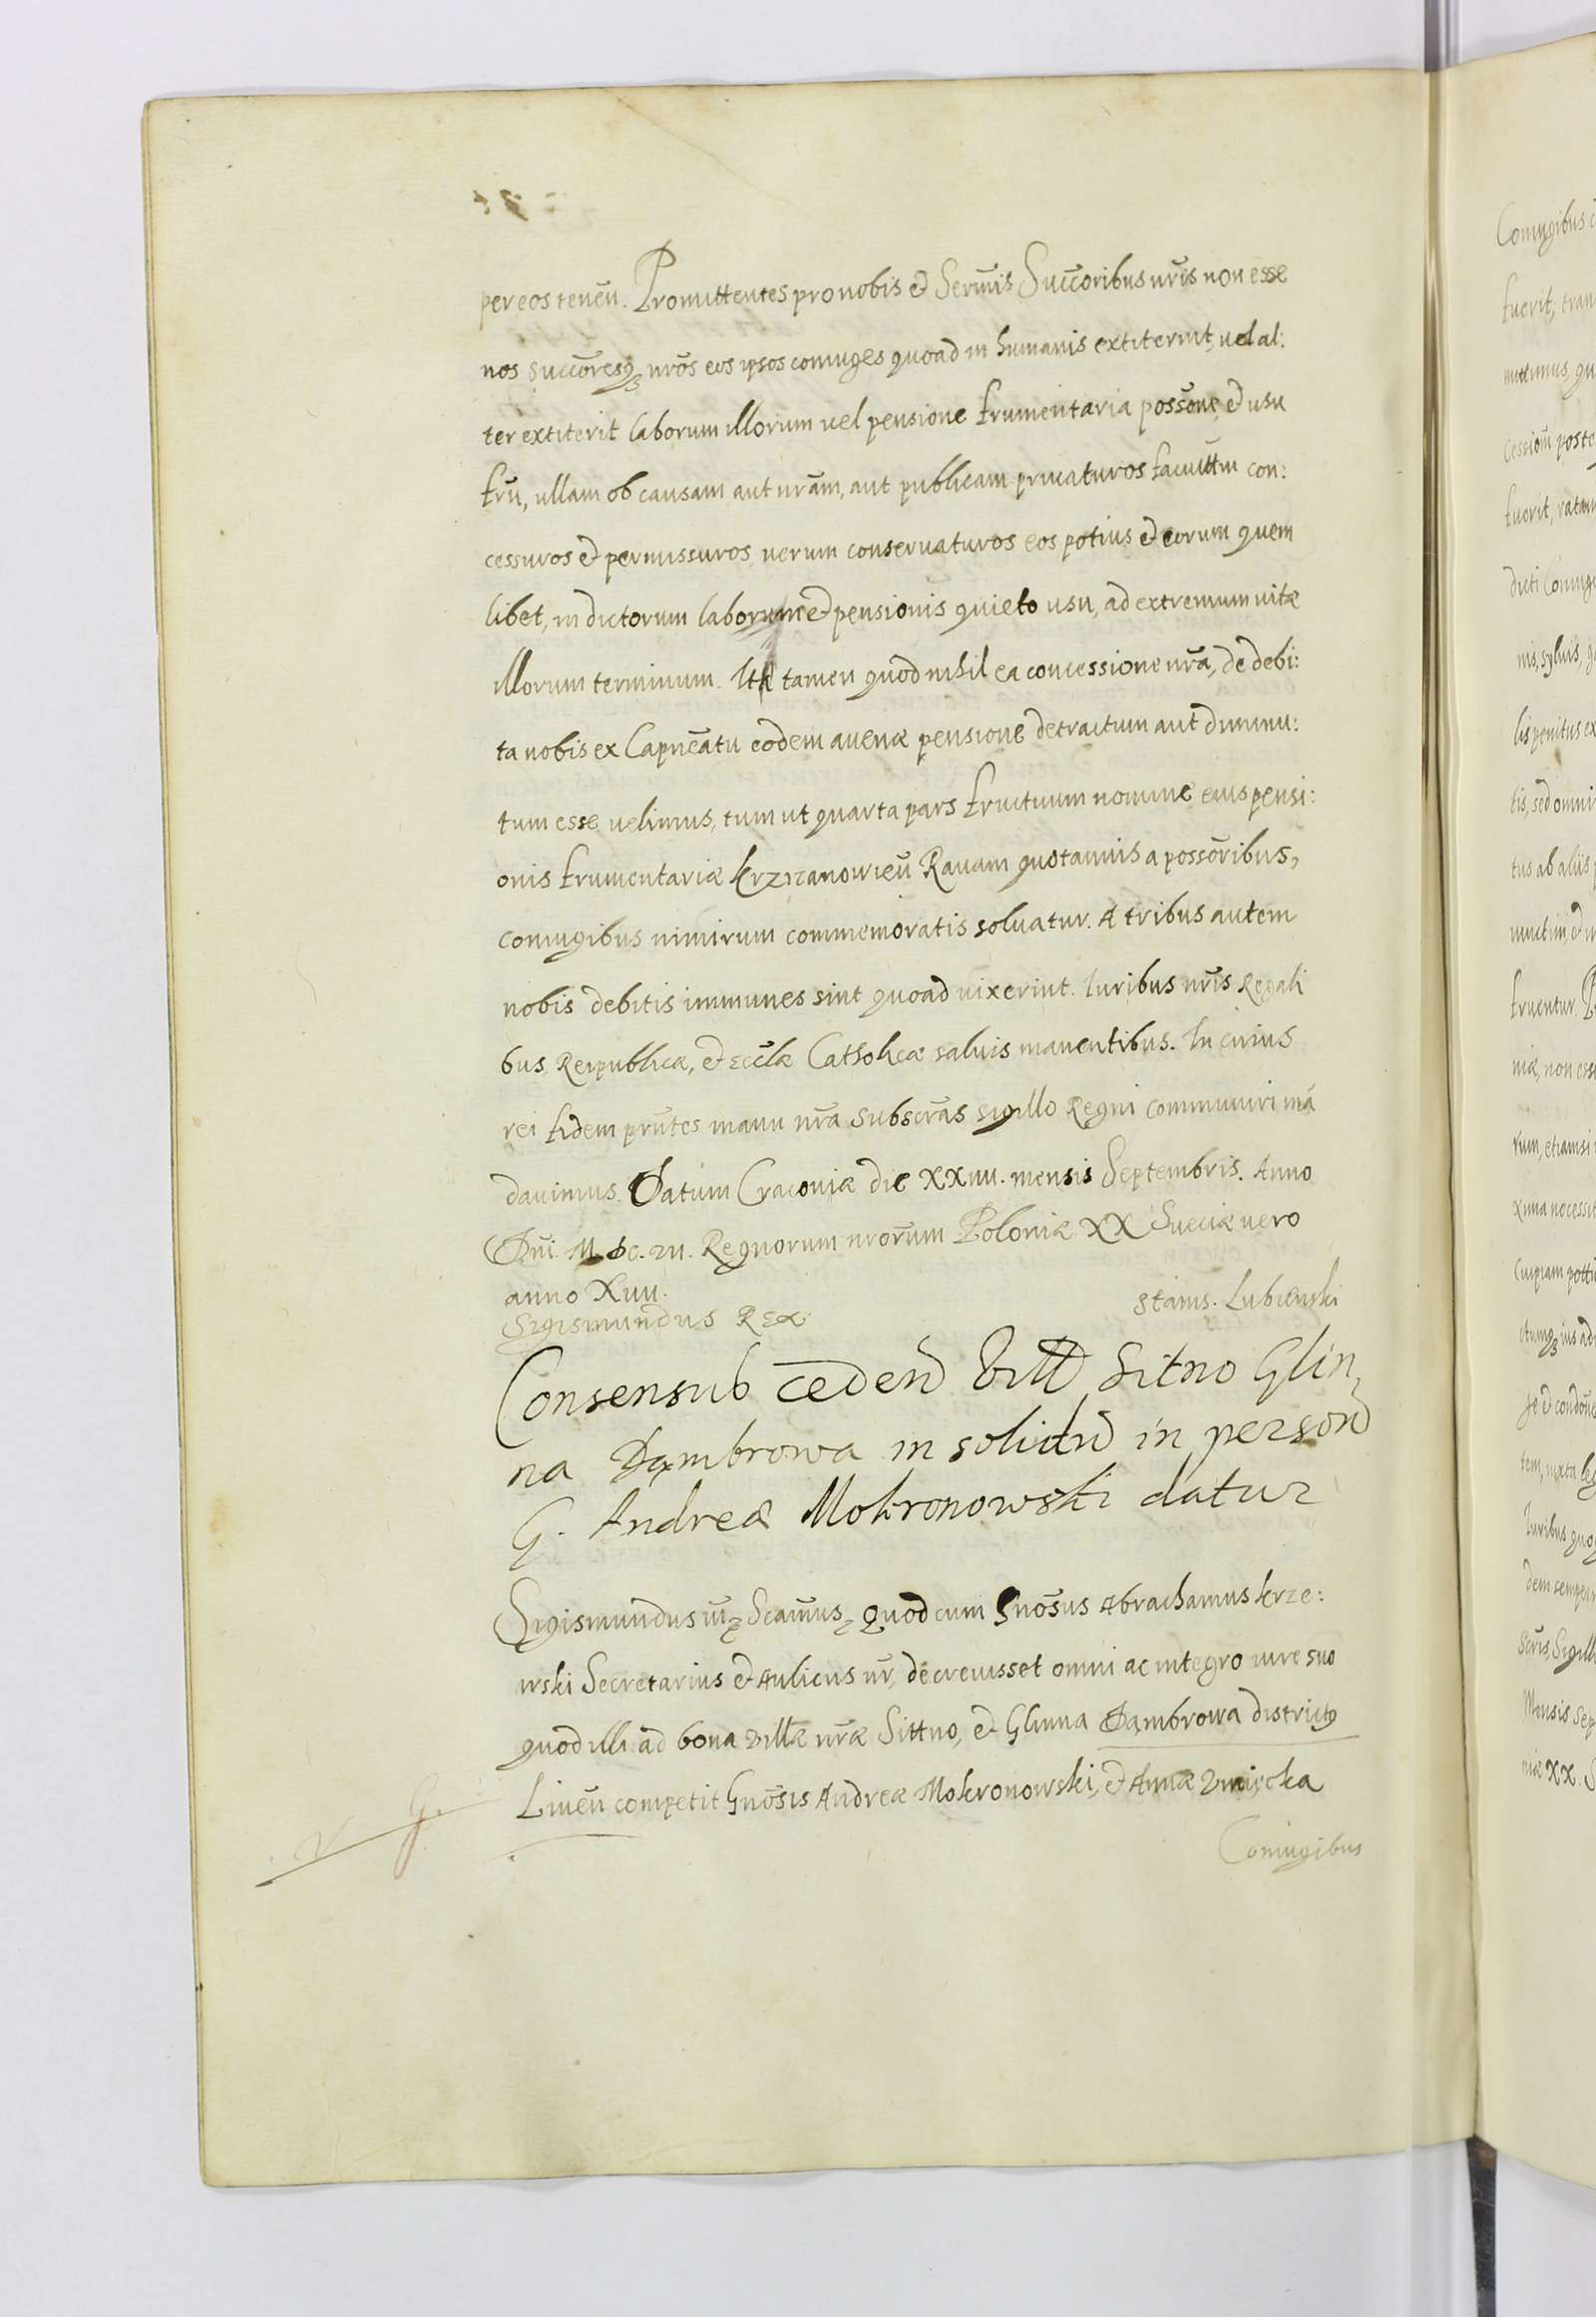 per eos teneñ. Promittentes pro nobis et Serm̃is Succ̃oribus nr̃is non esse
nos succ̃oresq; nr̃os eos ipsos coniuges quoad in humanis extiterint, vel al:
ter extiterit laborum illorum vel pensione frumentaria poss̃one, et usu
frũ, ullam ob causam aut nr̃am, aut publicam privaturos facult̃m con:
cessuros et permissuros, verum conservaturos eos potius et eorum quem
libet, in dictorum laborum et pensionis quieto usu, ad extremum vitæ
illorum terminum. Ita tamen quod nihil ea concessione nr̃a, de debi:
ta nobis ex Capnẽatu eodem avenæ pensione detractum aut diminu:
tum esse velimus, tum ut quarta pars fructuum nomine eius pensi:
onis frumentariæ Krziczanowieñ Ravam quotannis a poss̃oribus,
coniugibus nimirum commemoratis solvatur. A tribus autem
nobis debitis immunes sint quoad vixerint. Iuribus nr̃is Regali
bus, Reipublicæ, et Eccl̃æ Catholicæ salvis manentibus. In cuius
rei fidem prñtes manu nr̃a subscr̃as sigillo Regni communiri mã
davimus. Datum Cracoviæ die XXIIII. mensis Septembris. Anno
Dñi. M.DC.VII. Regnorum nrõrum Poloniæ XX Sueciæ vero
anno XIIII.
Sigismundus Rex. Stanis. Lubienski
Consensus cedend Vill Sitno Glin,
na Dąmbrowa in solidũ in person
G. Andreæ Mokronowski datur
Sigismundus III etc. Scam̃us etc. Quod cum Gnõsus Abrachamus Krze:
wski Secretarius et Aulicus nr̃, decrevisset omni ac integro iure suo
quod illi ad bona villæ nr̃æ Sittno, et Glinna Dąmbrowa districtus
Liveñ competit Gnõsis Andreæ Mokronowski, et Annæ
G.
Coniugibus